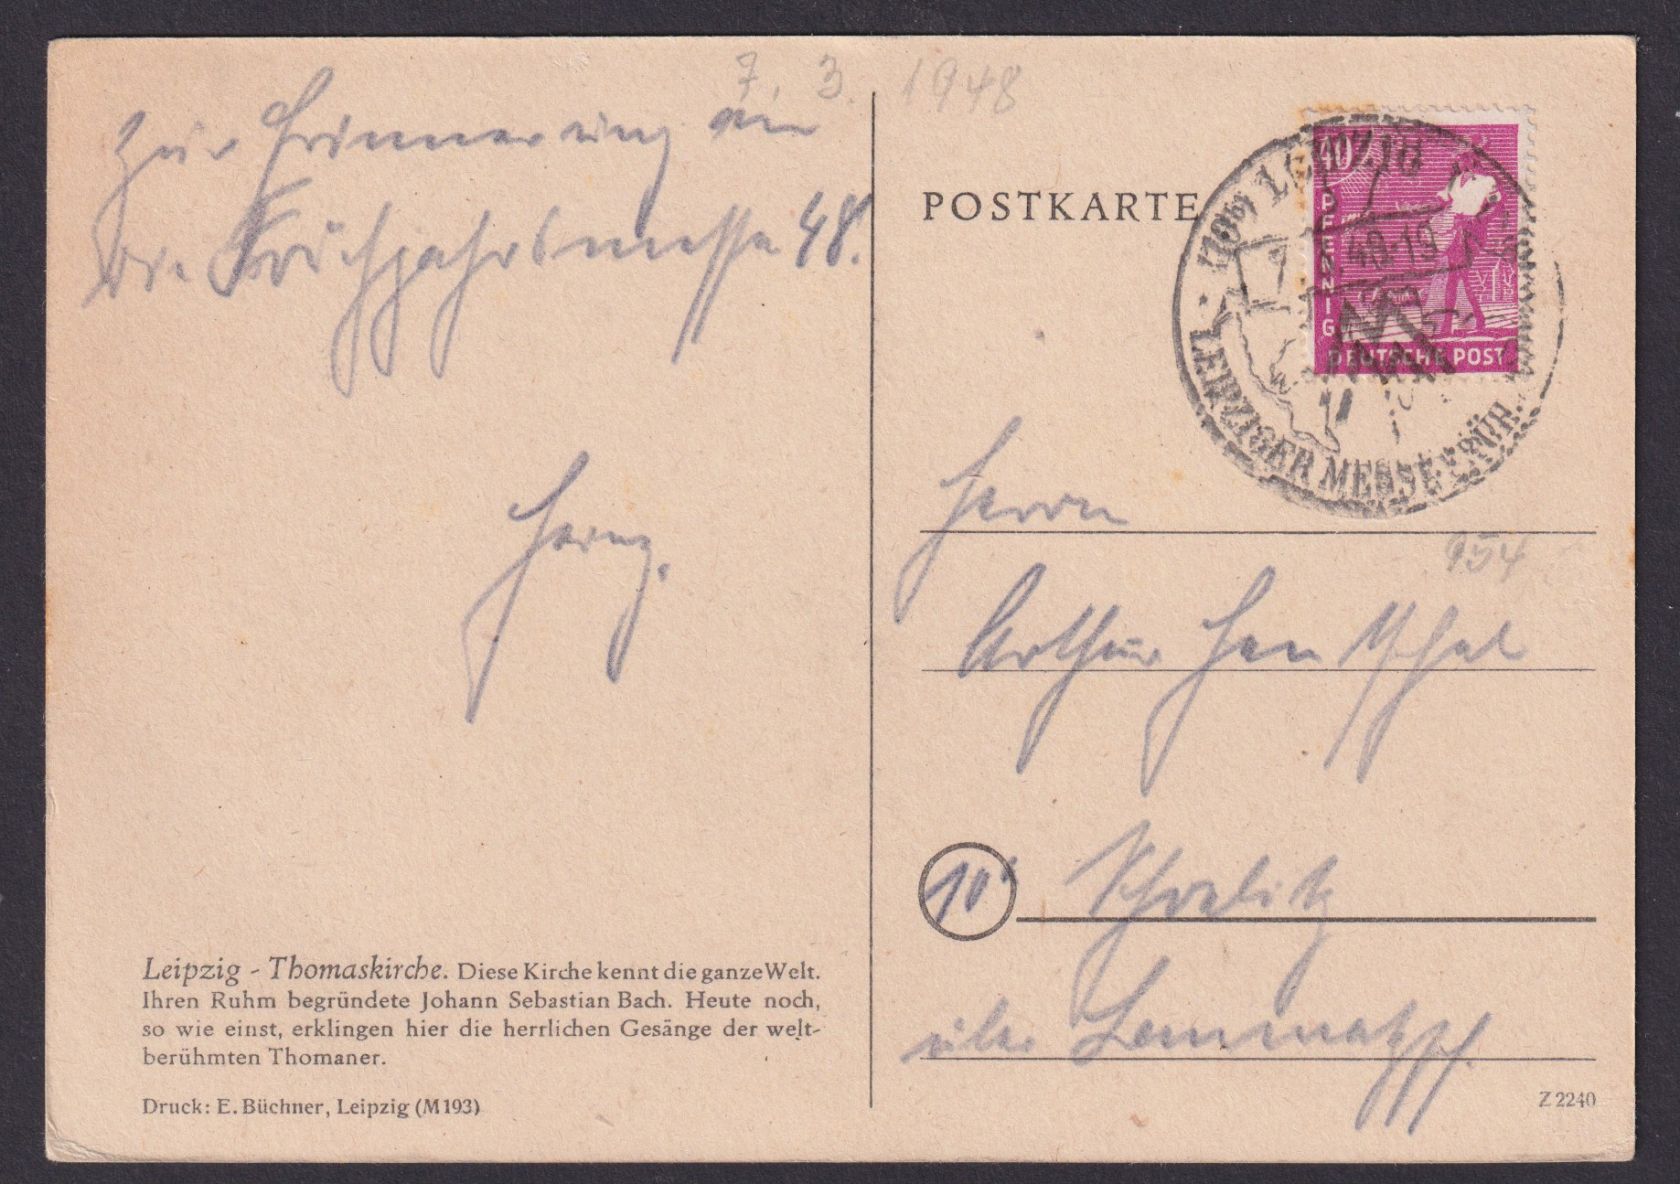 7. 3. 1948
zur Erinnerung an
die Frühjahrsmesse 48.
Heinz.
Leipzig - Thomaskirche. Diese Kirche kennt die ganze Welt.
Ihren Ruhm begründete Johann Sebastian Bach. Heute noch,
so wie einst, erklingen hier die herrlichen Gesänge der welt-
berühmten Thomaner.
Druck: E. Büchner, Leipzig (M193)
POSTKARTE
40
PFENNIG
DEUTSCHE POST
(10b) LEIPZIG
48-19
LEIPZIGER MESSE FRÜH
Herrn
954
Arthur Hentschel
10
Schrebitz
über Lommatzsch
Z 2240